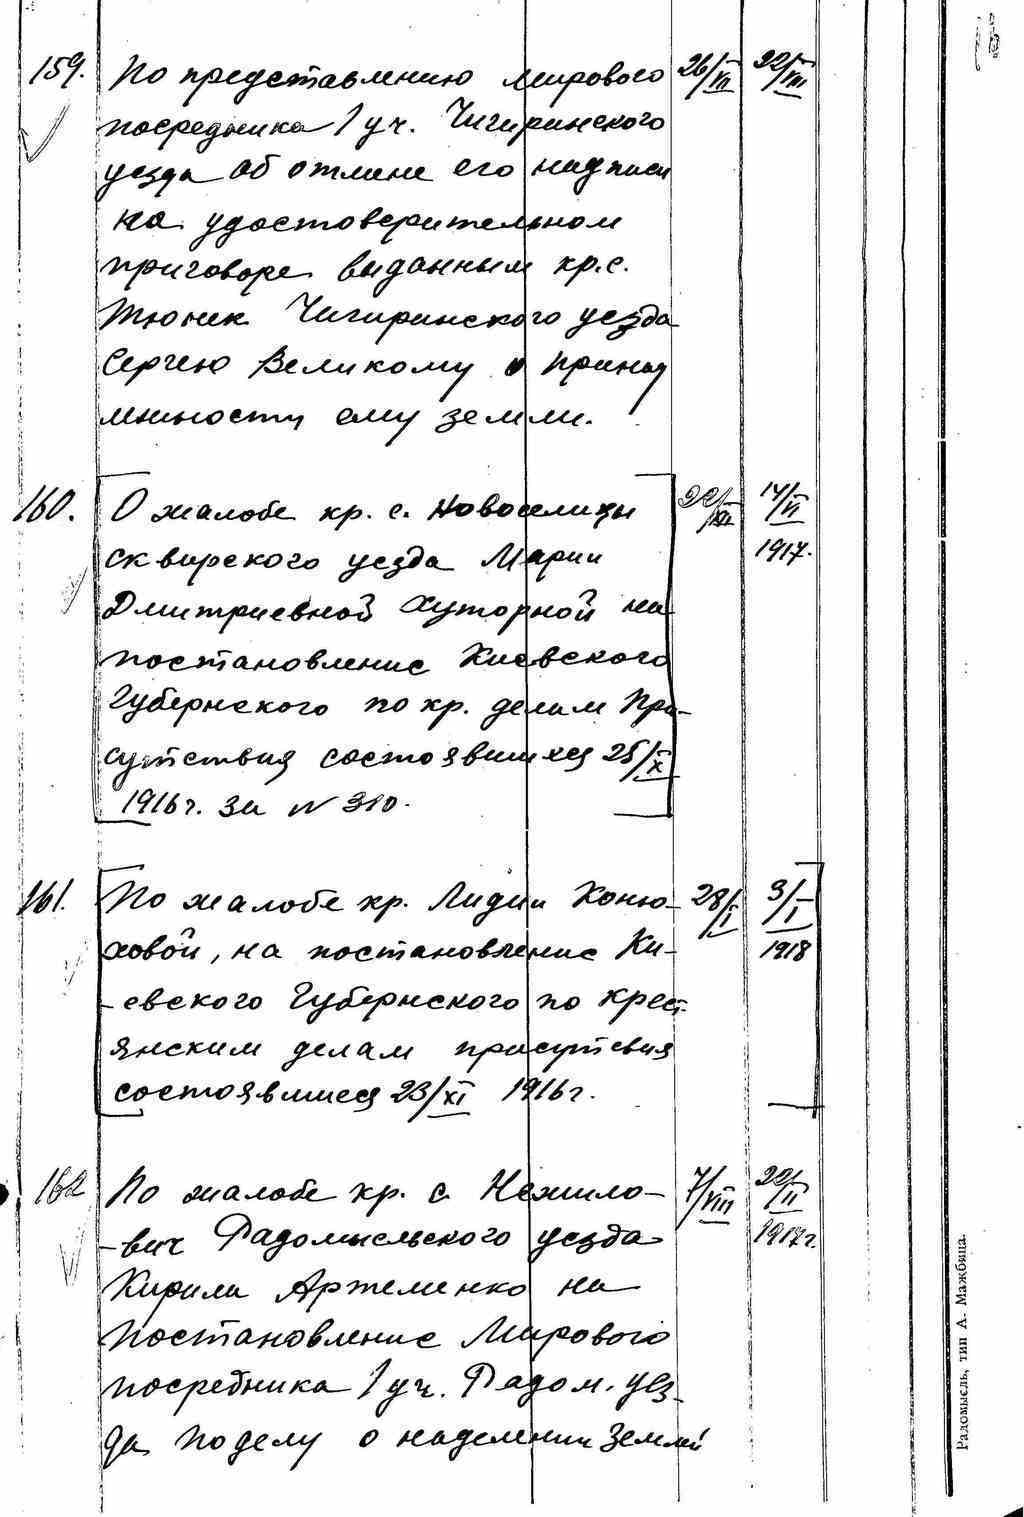 159. По представлению мирового 26/VII 22/VIII
посредника 1 уч. Чигиринского
уезда об отмене его надписи
на удостоверительном
приговоре выданным кр.с.
Тюнек Чигиринского уезда
Сергею Великому о принад
лежности ему земли.
160. О жалобе кр. с. Новоселицы 14/VI
сквирского уезда Марии 1917.
Дмитриевной Хуторной на
постановление Киевского
Губернского по кр. делам При-
сутствия состоявшихся 25/X
1916 г. за N 310.
161. По жалобе кр. Лидии Коню- 28/I 3/I
ховой, на постановление Ки- 1918
-евского Губернского по крест
янским делам присутсвия
состоявшиеся 23/XI 1916 г.
162 По жалобе кр. с. Нежило- 7/VIII 22/II
-вич Радомысльского уезда 1917 г.
Кирила Артеменко на
постановление Мирового
посредника 1 уч. Радом. уез-
да по делу о наделении землей
Радомысль, тип А. Мажбица.